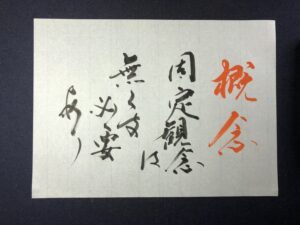 概念
固定観念は
無くす
必要
あり